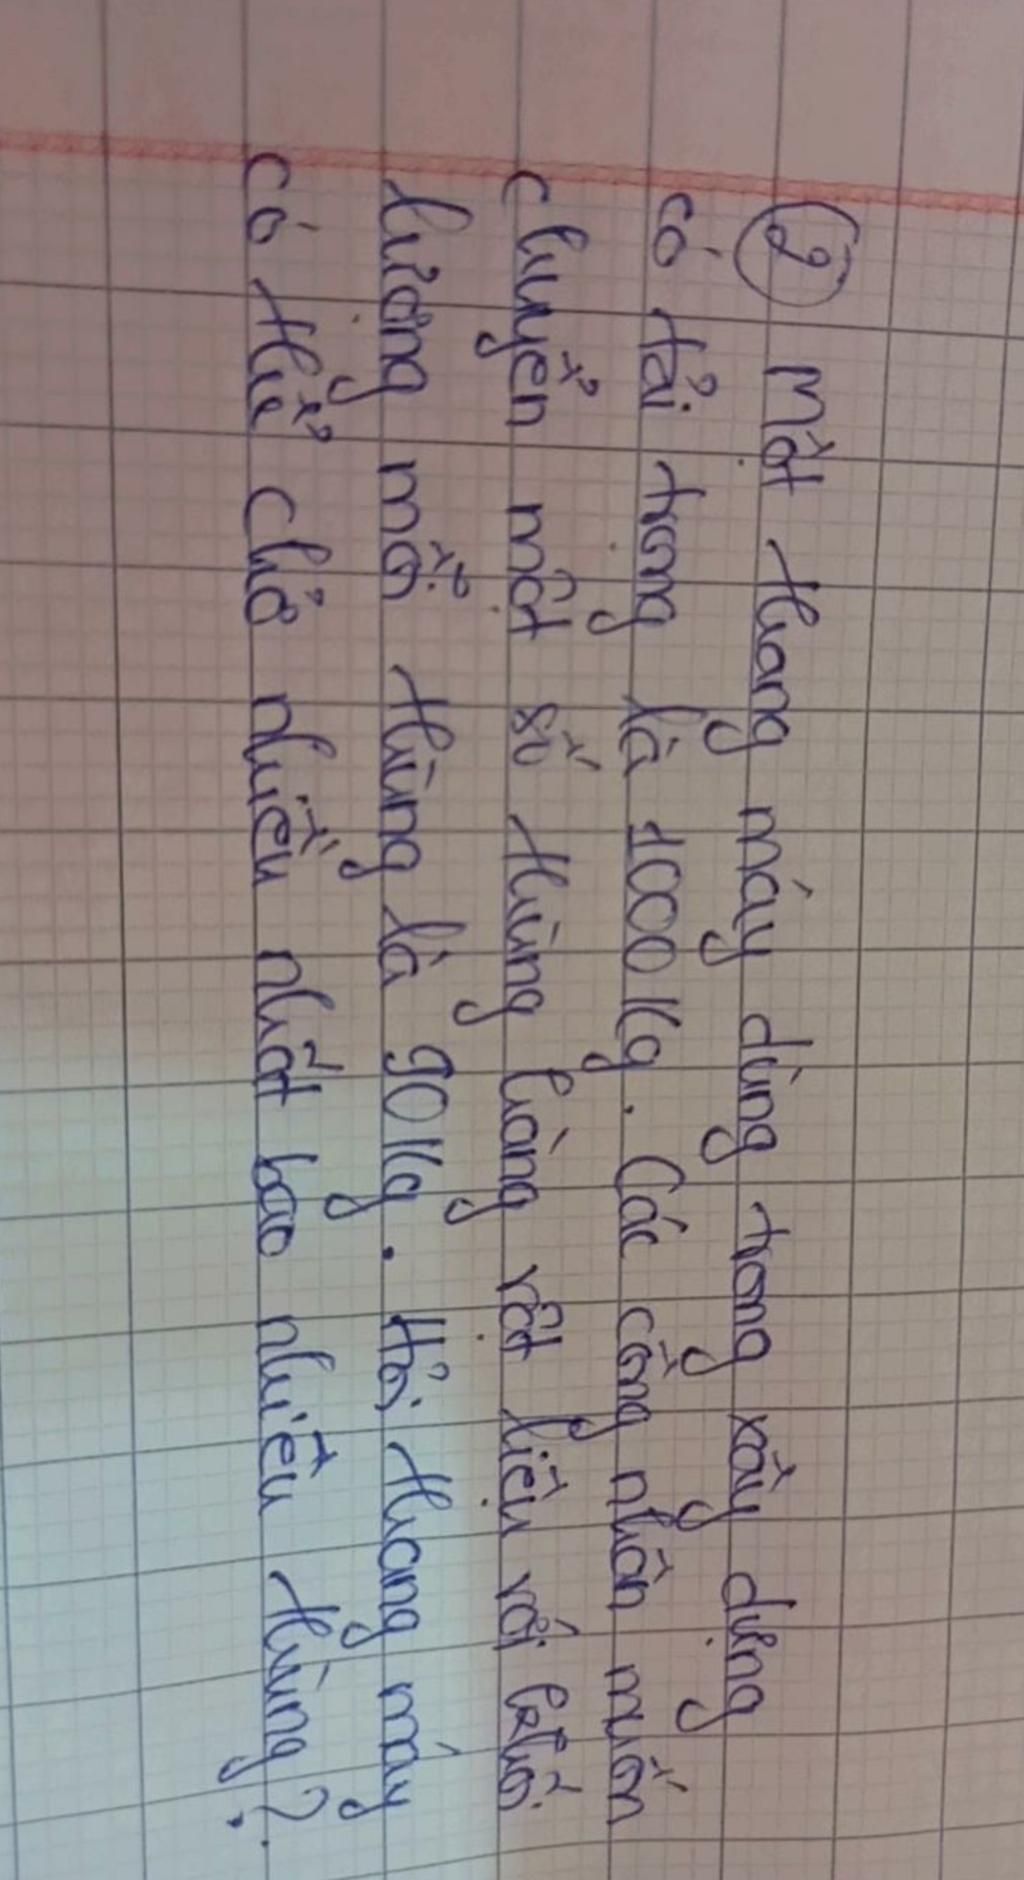 ② Một thang máy dùng trong xây dựng
có tải trọng là 1000kg. Các công nhân muốn
chuyển một số thùng hàng vật liệu với khối
lượng mỗi thùng là 90kg. Hỏi thang máy
có thể chở nhiều nhất bao nhiêu thùng?